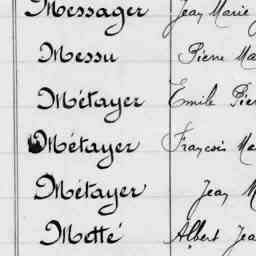 Messager Jean Marie
Messu Pierre Ma
Métayer Emile Pier
Métayer François Me
Métayer Jean M
Metté Albert Jea